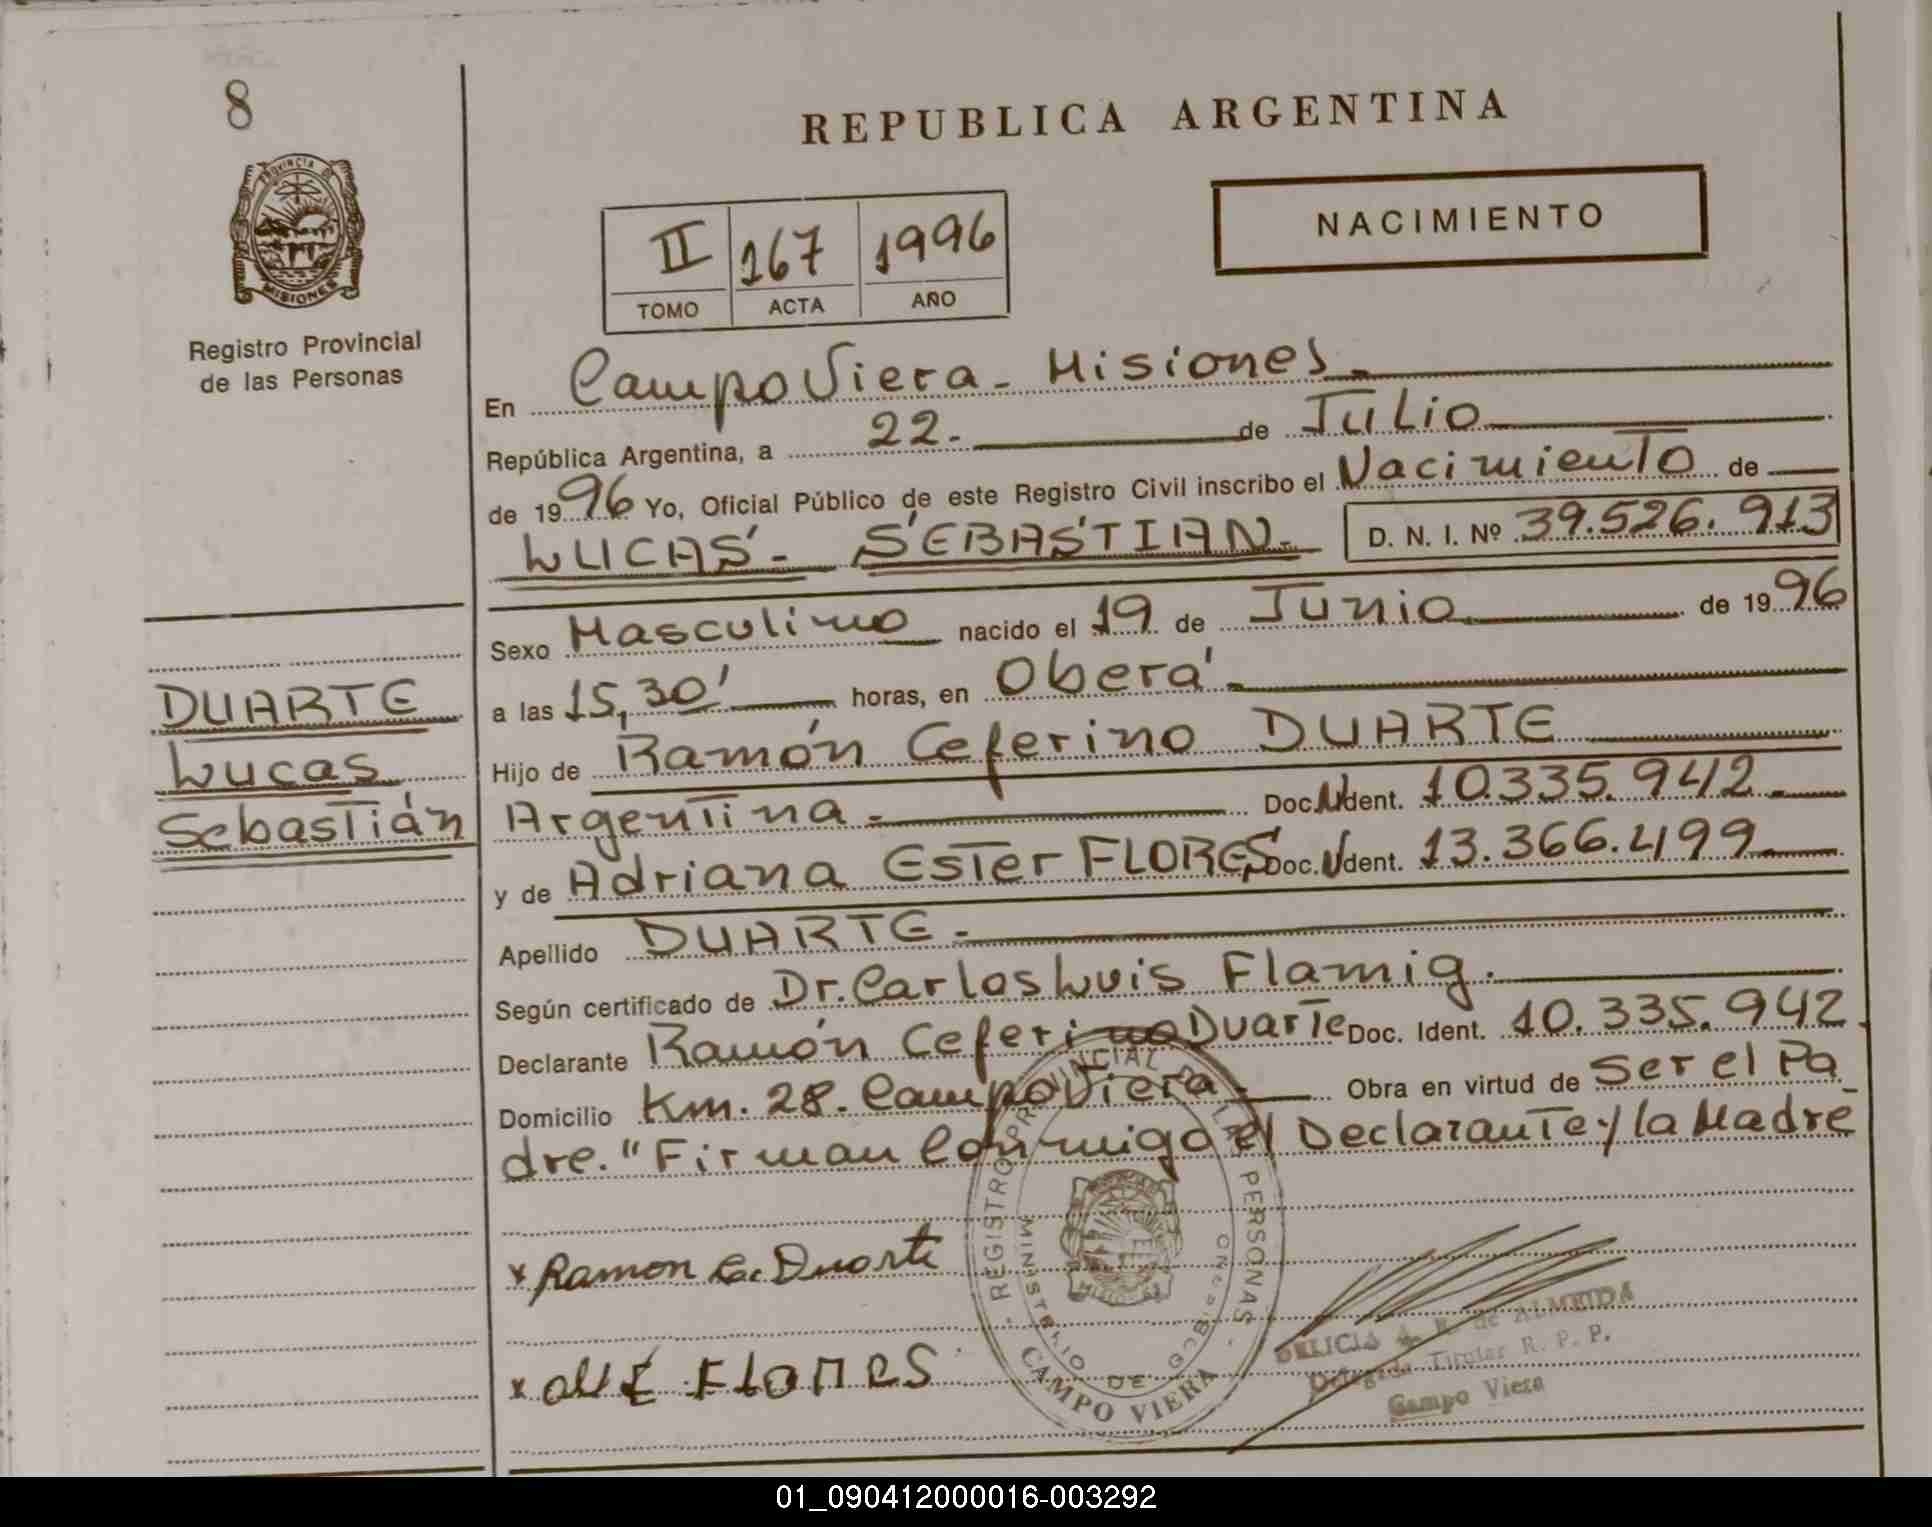 8
PROVINCIA DE
MISIONES
Registro Provincial
de las Personas
DUARTE
Lucas
Sebastián
REPUBLICA ARGENTINA
NACIMIENTO
II 167 1996
TOMO ACTA AÑO
En Campo Viera - Misiones.
República Argentina, a 22. de Julio
de 1996 Yo, Oficial Público de este Registro Civil inscribo el Nacimiento de
LUCAS - SEBASTIAN - D. N. I. Nº 39.526.913
Sexo Masculino nacido el 19 de Junio de 1996
a las 15,30' horas, en Oberá
Hijo de Ramón Ceferino DUARTE
Argentina. Doc. Ident. 10.335.942
y de Adriana Ester FLORES Doc. Ident. 13.366.499
Apellido DUARTE -
Según certificado de Dr. Carlos Luis Flamig.
Declarante Ramón Ceferino Duarte Doc. Ident. 10.335.942
Domicilio Km. 28. Campo Viera - Obra en virtud de Ser el Pa
dre. "Firman Conmigo el Declarante y la Madre
x Ramon C. Duarte
x FLORES
REGISTRO PROVINCIAL DE LAS PERSONAS
MINISTERIO DE GOBIERNO
CAMPO VIERA
DELICIA de ALMEIDA
Delegada Titular R. P. P.
Campo Viera
01_090412000016-003292